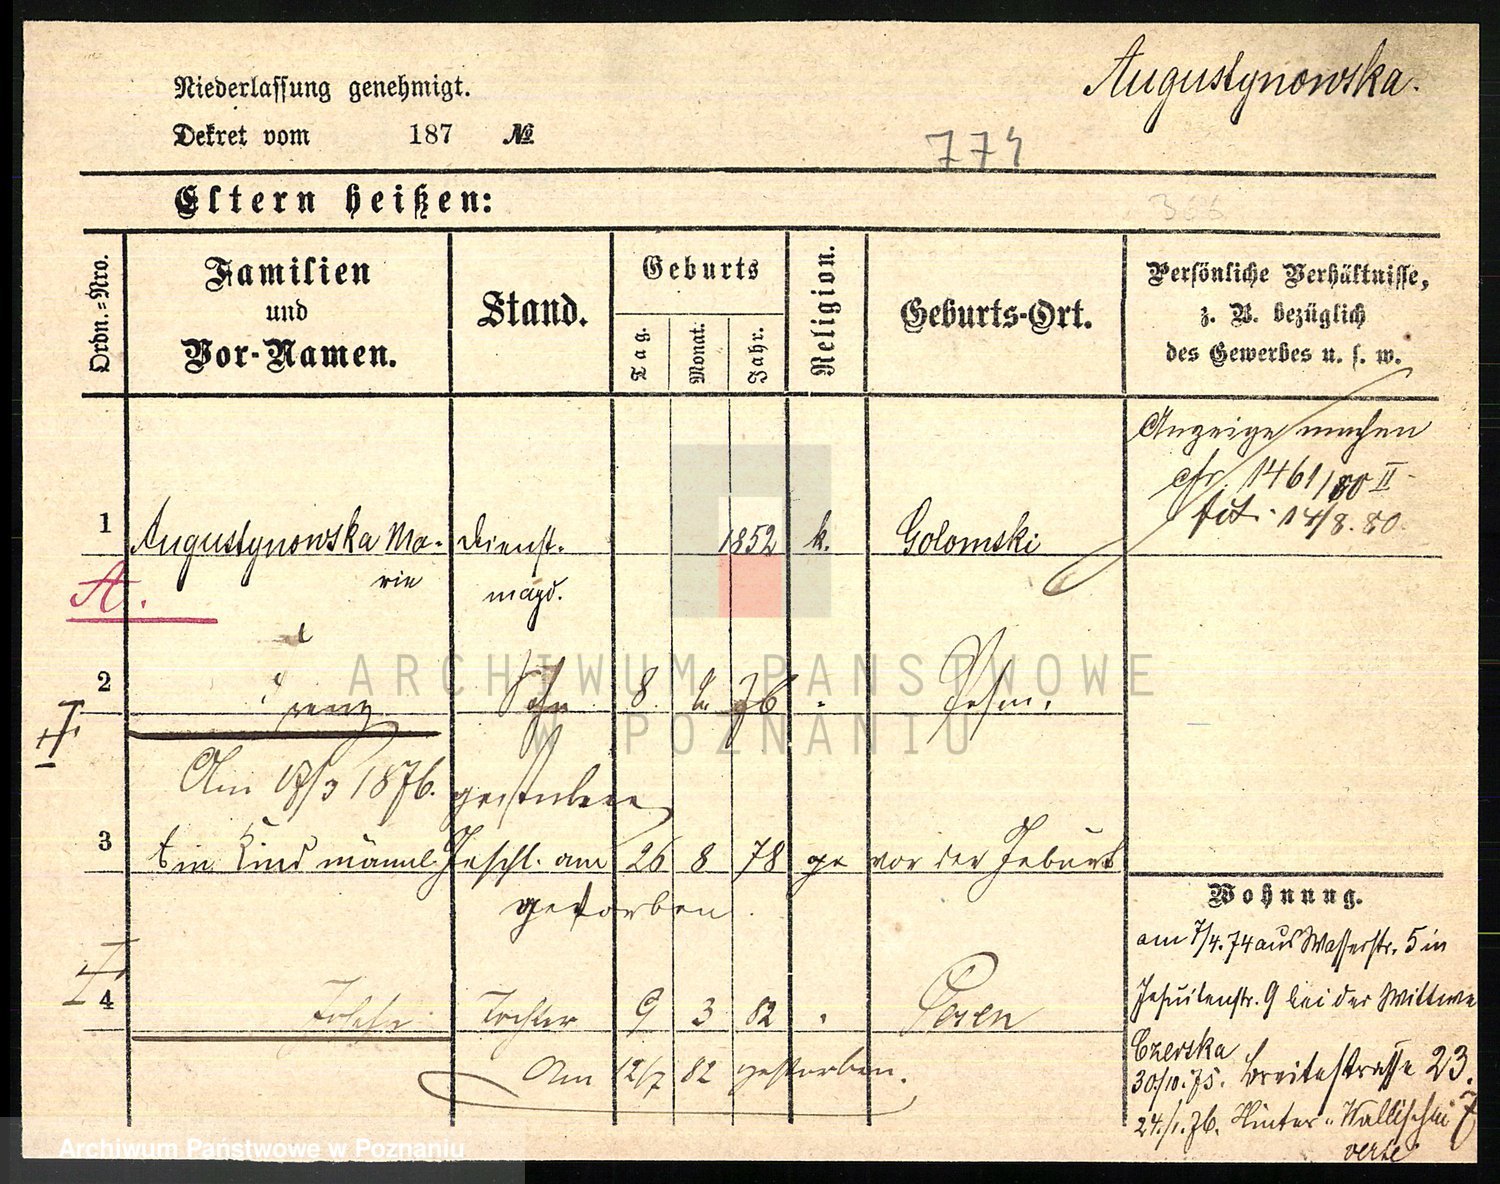 Augustynowska.
Niederlassung genehmigt.
Dekret vom 187 №
774
366
Eltern heißen:
Ordn.=Nro.
Familien
und
Vor-Namen.
Stand.
Geburts
Tag.
Monat.
Jahr.
Religion.
Geburts-Ort.
Persönliche Verhältnisse,
z. B. bezüglich
des Gewerbes u. s. w.
Anzeige machen
cfr. 1461/80 II
14/8. 80.
1 Augustynowska Ma- Dienst- 1852 k. Golomski
rie magd.
A.
2 Sohn 8. 76 Posen.
Am 17/3 1876. gestorben
3 Ein Kind männl. Geschl. am 26 8 78 ge vor der Geburt
gestorben.
4 Tochter 9 3 82 Posen
Am 12/7 82 gestorben.
Wohnung.
am 7/4. 74 aus Wasserstr. 5 in
Jesuitenstr. 9 bei der Wittwe
Czerska
30/10. 75. Breitestrasse 23.
24/1. 76. Hinter-Wallischei 7
verte
ARCHIWUM PAŃSTWOWE
W POZNANIU
Archiwum Państwowe w Poznaniu